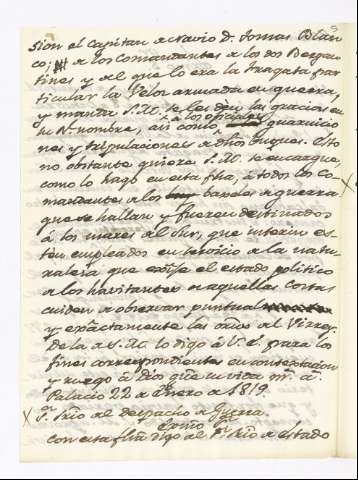 sion el Capitan de Navio D. Tomas Blan
co; a los Comandantes de los dos Bergan
tines y al que lo era la Fragata par
ticular la Veloz armada en guerra,
y manda S.M. se les den las gracias en
su Rl. nombre, asi como, a los oficiales guarnicio
nes y tripulaciones de dhos buques. Esto
no obstante quiere S.M. se encargue,
como lo hago en esta fha, a todos los Co-
mandantes de los baxeles de guerra
que se hallan y fueren destinados
á los mares del Sur, que interin es-
ten empleados en servicio de la natu-
raleza que exije el estado politico
de los havitantes de aquellas Costas
cuiden de observar puntual
y exâctamente las ordnes del Virrey.
De la de S.M. lo digo á V.E. para los
fines correspondientes en contestacion
y ruego á Dios gue su vida ms. as.
Palacio 22 de Enero de 1819.
Sr. Srio del despacho de Guerra.
Como
Con esta fha digo al Sr. Srio de Estado